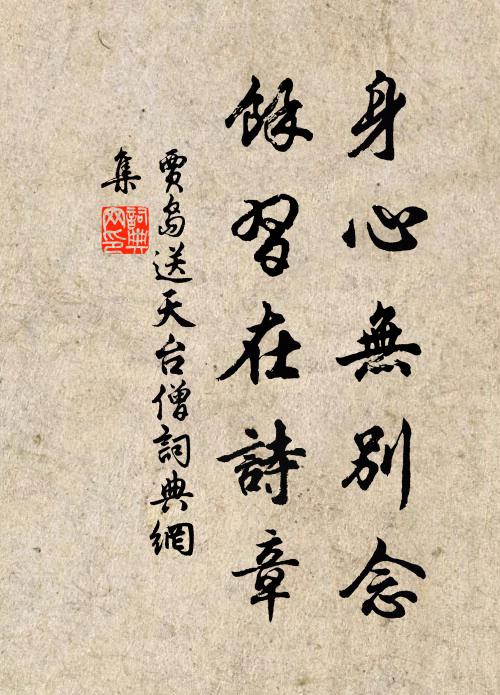 身心無別念
餘習在詩章
賈島送天台僧詞典網
集
詞典
网印